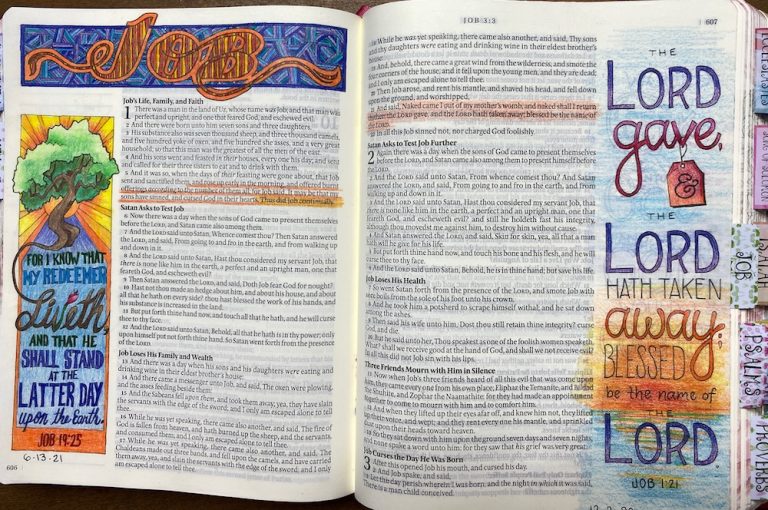 JOB
Job's Life, Family, and Faith
1 There was a man in the land of Uz, whose name was Job; and that man was
perfect and upright, and one that feared God, and eschewed evil.
2 And there were born unto him seven sons and three daughters.
3 His substance also was seven thousand sheep, and three thousand camels,
and five hundred yoke of oxen, and five hundred she asses, and a very great
household; so that this man was the greatest of all the men of the east.
4 And his sons went and feasted in their houses, every one his day; and sent
and called for their three sisters to eat and to drink with them.
5 And it was so, when the days of their feasting were gone about, that Job
sent and sanctified them, and rose up early in the morning, and offered burnt
offerings according to the number of them all: for Job said, It may be that my
sons have sinned, and cursed God in their hearts. Thus did Job continually.
Satan Asks to Test Job
6 Now there was a day when the sons of God came to present themselves
before the LORD, and Satan came also among them.
7 And the LORD said unto Satan, Whence comest thou? Then Satan answered
the LORD, and said, From going to and fro in the earth, and from walking up
and down in it.
8 And the LORD said unto Satan, Hast thou considered my servant Job, that
there is none like him in the earth, a perfect and an upright man, one that
feareth God, and escheweth evil?
9 Then Satan answered the LORD, and said, Doth Job fear God for nought?
10 Hast not thou made an hedge about him, and about his house, and about
all that he hath on every side? thou hast blessed the work of his hands, and
his substance is increased in the land:
11 But put forth thine hand now, and touch all that he hath, and he will curse
thee to thy face.
12 And the LORD said unto Satan, Behold, all that he hath is in thy power; only
upon himself put not forth thine hand. So Satan went forth from the presence
of the LORD.
Job Loses His Family and Wealth
13 And there was a day when his sons and his daughters were eating and
drinking wine in their eldest brother's house:
14 And there came a messenger unto Job, and said, The oxen were plowing,
and the asses feeding beside them:
15 And the Sabeans fell upon them, and took them away; yea, they have slain
the servants with the edge of the sword; and I only am escaped alone to tell
thee.
16 While he was yet speaking, there came also another, and said, The fire of
God is fallen from heaven, and hath burned up the sheep, and the servants,
and consumed them; and I only am escaped alone to tell thee.
17 While he was yet speaking, there came also another, and said, The
Chaldeans made out three bands, and fell upon the camels, and have carried
them away, yea, and slain the servants with the edge of the sword; and I only
am escaped alone to tell thee.
FOR I KNOW THAT
MY REDEEMER
Liveth,
AND THAT HE
SHALL STAND
AT THE
LATTER DAY
upon the Earth.
JOB 19:25
606
6-13-21
JOB 3:3
607
18 While he was yet speaking, there came also another, and said, Thy sons
and thy daughters were eating and drinking wine in their eldest brother's
house:
19 And, behold, there came a great wind from the wilderness, and smote the
four corners of the house, and it fell upon the young men, and they are dead;
and I only am escaped alone to tell thee.
20 Then Job arose, and rent his mantle, and shaved his head, and fell down
upon the ground, and worshipped,
21 And said, Naked came I out of my mother's womb, and naked shall I return
thither: the LORD gave, and the LORD hath taken away; blessed be the name of
the LORD.
22 In all this Job sinned not, nor charged God foolishly.
Satan Asks to Test Job Further
2 Again there was a day when the sons of God came to present themselves
before the LORD, and Satan came also among them to present himself before
the LORD.
2 And the LORD said unto Satan, From whence comest thou? And Satan
answered the LORD, and said, From going to and fro in the earth, and from
walking up and down in it.
3 And the LORD said unto Satan, Hast thou considered my servant Job, that
there is none like him in the earth, a perfect and an upright man, one that
feareth God, and escheweth evil? and still he holdeth fast his integrity,
although thou movedst me against him, to destroy him without cause.
4 And Satan answered the LORD, and said, Skin for skin, yea, all that a man
hath will he give for his life.
5 But put forth thine hand now, and touch his bone and his flesh, and he will
curse thee to thy face.
6 And the LORD said unto Satan, Behold, he is in thine hand; but save his life.
Job Loses His Health
7 So went Satan forth from the presence of the LORD, and smote Job with
sore boils from the sole of his foot unto his crown.
8 And he took him a potsherd to scrape himself withal; and he sat down
among the ashes.
9 Then said his wife unto him, Dost thou still retain thine integrity? curse
God, and die.
10 But he said unto her, Thou speakest as one of the foolish women speaketh.
What? shall we receive good at the hand of God, and shall we not receive evil?
In all this did not Job sin with his lips.
Three Friends Mourn with Him in Silence
11 Now when Job's three friends heard of all this evil that was come upon
him, they came every one from his own place; Eliphaz the Temanite, and Bildad
the Shuhite, and Zophar the Naamathite: for they had made an appointment
together to come to mourn with him and to comfort him.
12 And when they lifted up their eyes afar off, and knew him not, they lifted
up their voice, and wept; and they rent every one his mantle, and sprinkled
dust upon their heads toward heaven.
13 So they sat down with him upon the ground seven days and seven nights,
and none spake a word unto him: for they saw that his grief was very great.
Job Curses the Day He Was Born
3 After this opened Job his mouth, and cursed his day.
2 And Job spake, and said,
3 Let the day perish wherein I was born, and the night in which it was said,
There is a man child conceived.
THE
LORD
gave,
&
THE
LORD
HATH TAKEN
away;
BLESSED
be the name of
THE
LORD.
JOB 1:21
ISAIAH
JOB
PSALMS
PROVERBS